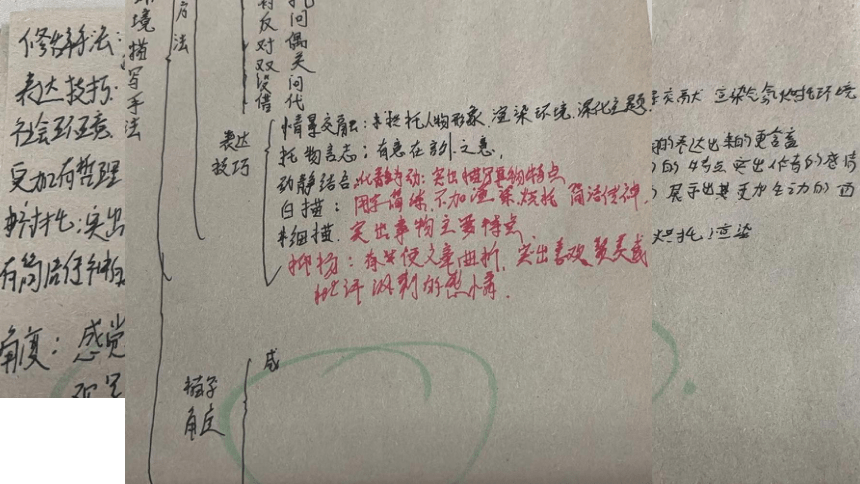 修辞手法：
表达技巧：
更加有哲理
衬托：突出
角度：感觉
环境描写手法
方法
反问
对偶
双关
设问
借代
表达技巧
情景交融：来烘托人物形象，渲染环境，深化主题
托物言志；有意在言外之意，
动静结合，化静为动：突出描写事物特点
白描：用字简练，不加渲染、烘托 简洁传神
细描．突出事物主要特点．
抑扬：存共使文章曲折，突出喜欢赞美或
批评讽刺的感情．
描写角度
感
渲染气氛 烘托环境
的表达出来的更含蓄
的特点 突出作者的感情
展示出其更加生动的画
烘托；渲染